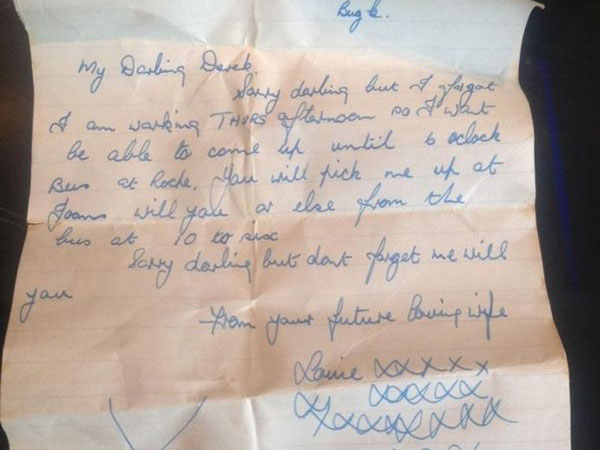 Bugle.
My Darling Derek
Sorry darling but I forgot
I am working THURS afternoon so I wont
be able to come up until 6 oclock
Bus at Roche. You will pick me up at
Joans will you or else from the
bus at 10 to six
Sorry darling but dont forget me will
you
From your future loving wife
xxxxxx
xxxxx
xxxxxxxxx